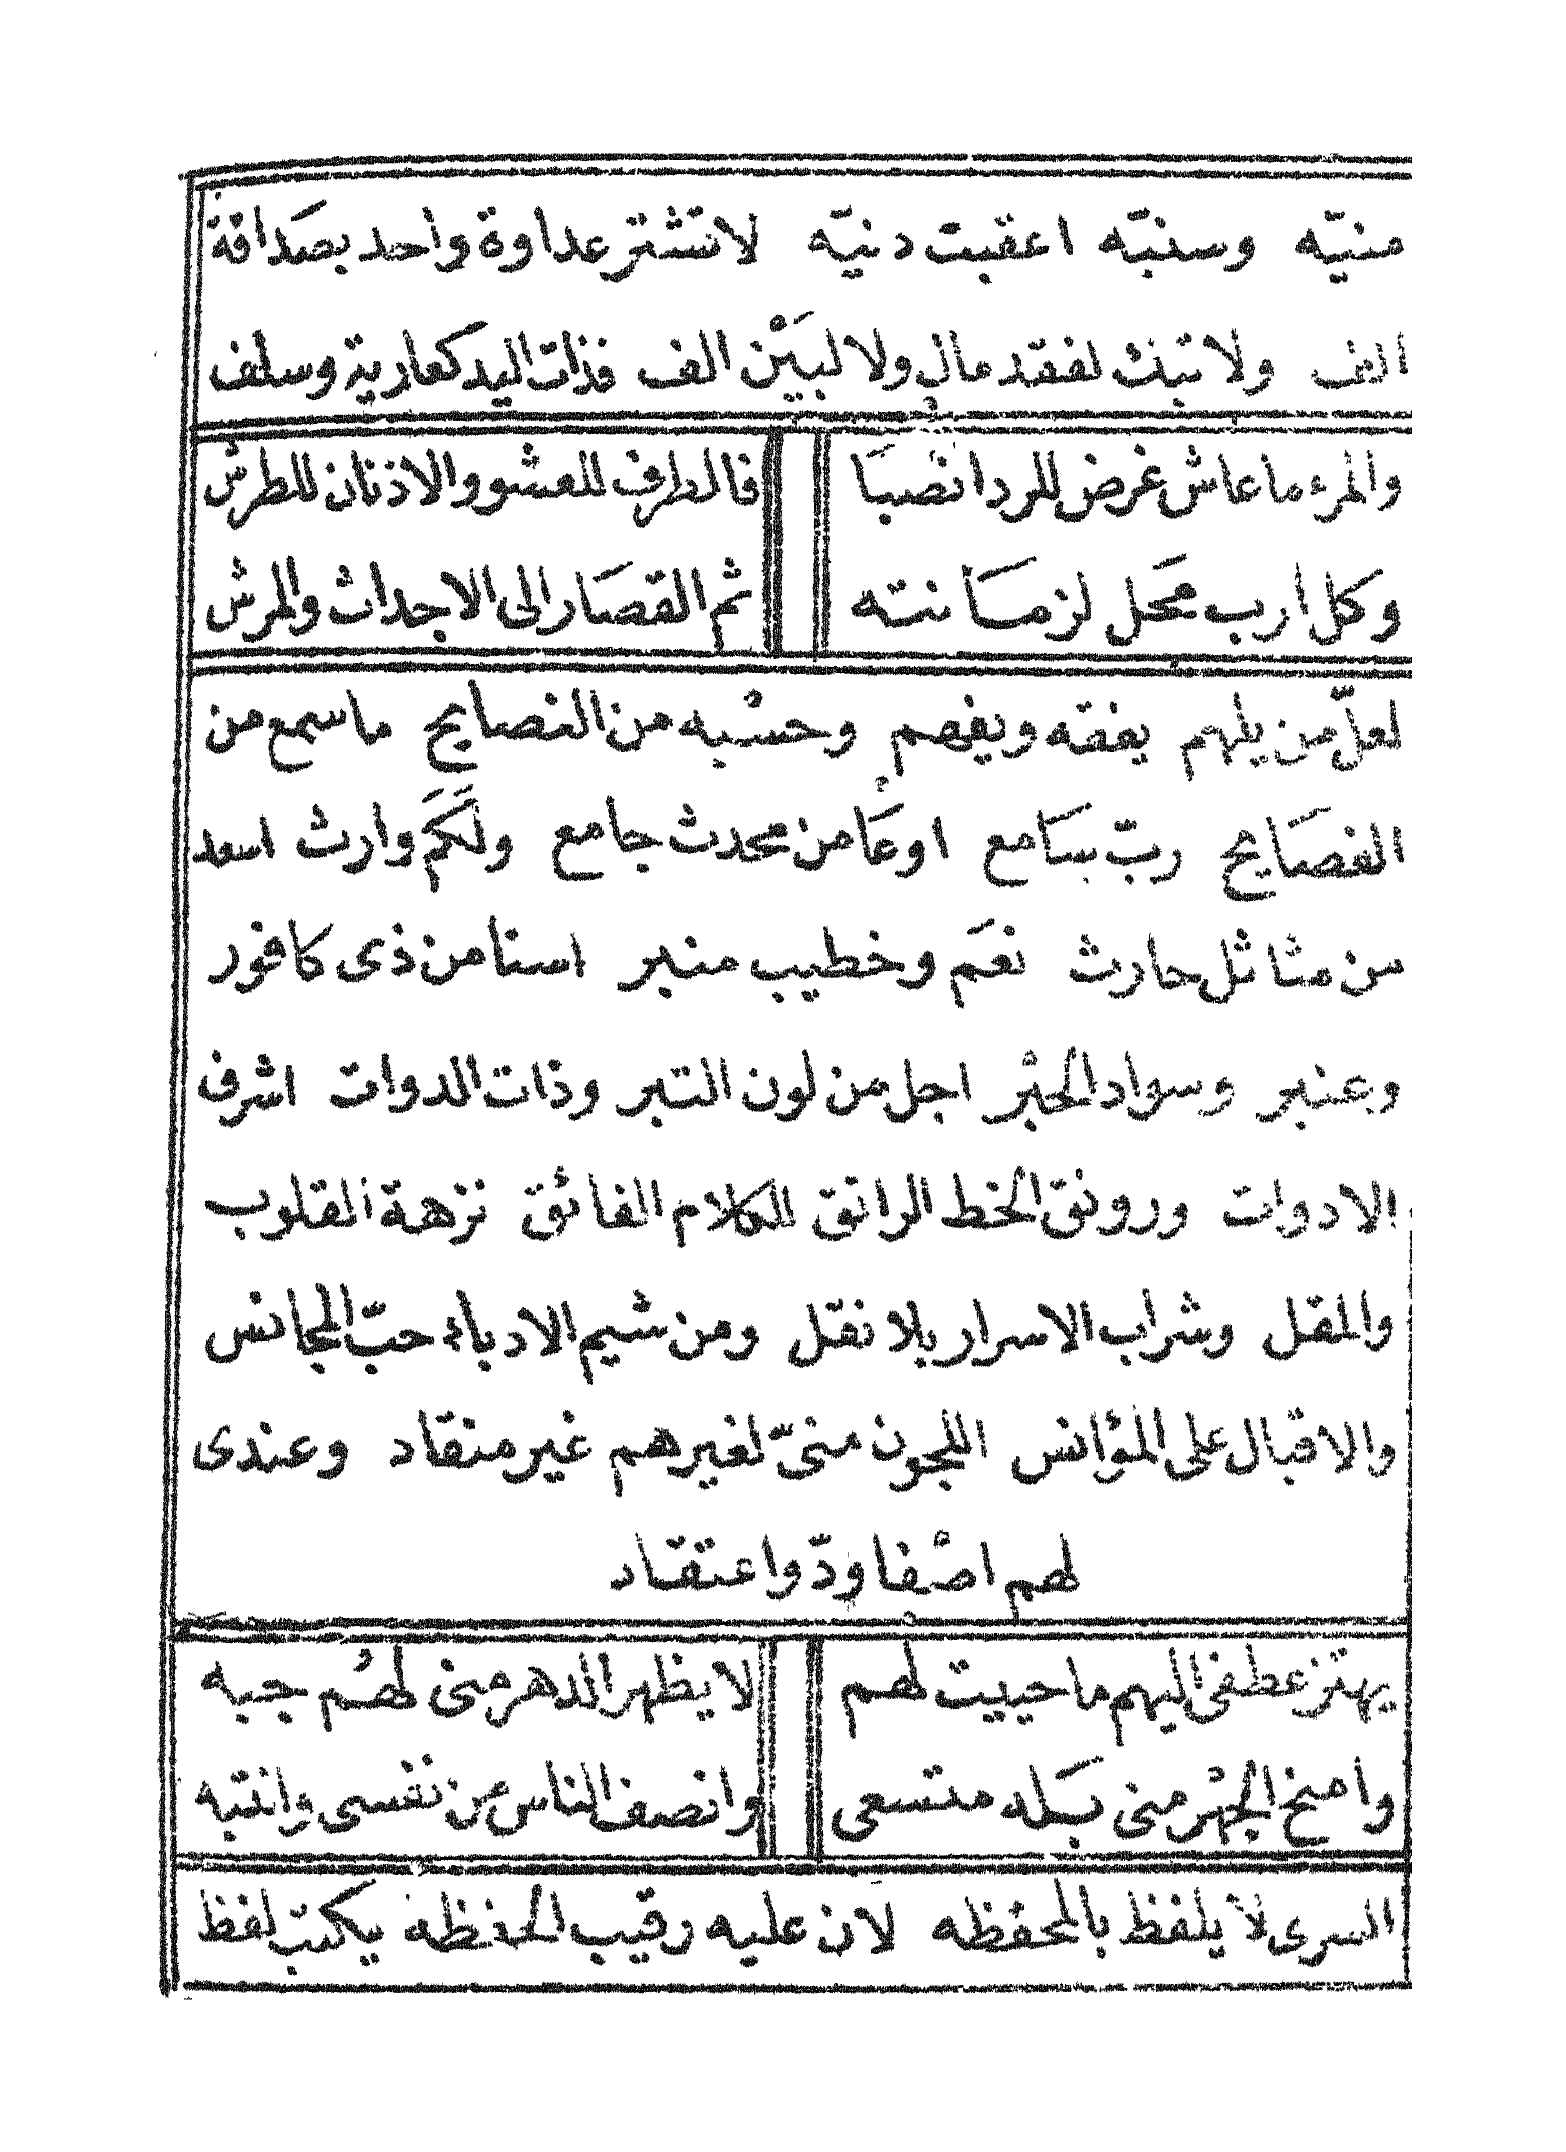 منيّه وسنبّه اعقبت دنيّه لا تشتر عداوة واحد بصداقة
الف ولا تبك لفقد مال ولا لبَيْن الف فذات اليد كعارية وسلف
والمرء ما عاش غرض للردا نصبَا فالطرف للعشو والاذنان للطرش
وكل ارب محَل لزمَانته ثم القصَار الى الاجداث والمرش
لعلّ من يلهم يفقه ويفهم وحسْبه من النصايح ما سمع من
الفصَايح ربّ سَامع اوعَا من محدث جامع ولَكَم وارث اسعد
من مثاثل حارث نعَم وخطيب منبر اسنا من ذى كافور
وعنبر وسواد الحبْر اجل من لون التبر وذات الدوات اشرف
الادوات ورونق الخط الرائق للكلام الفائق نزهة القلوب
والمقل وشراب الاسرار بلا نقل ومن شيم الادباء حبّ المجانس
والاقبال على المؤانس اللجون منىّ لغيرهم غير منقاد وعندى
لهم اصْفا ودّ واعتقاد
يهتز عطفى اليهم ما حييت لهم لا يظهر الدهر منى لهُم جبه
وامنح الجهْر منى بَلد متسعى وانصف الناس من نفسى وانتبه
السرى لا يلفظ بالمحفظه لان عليه رقيب الحفظه يكتب لفظ